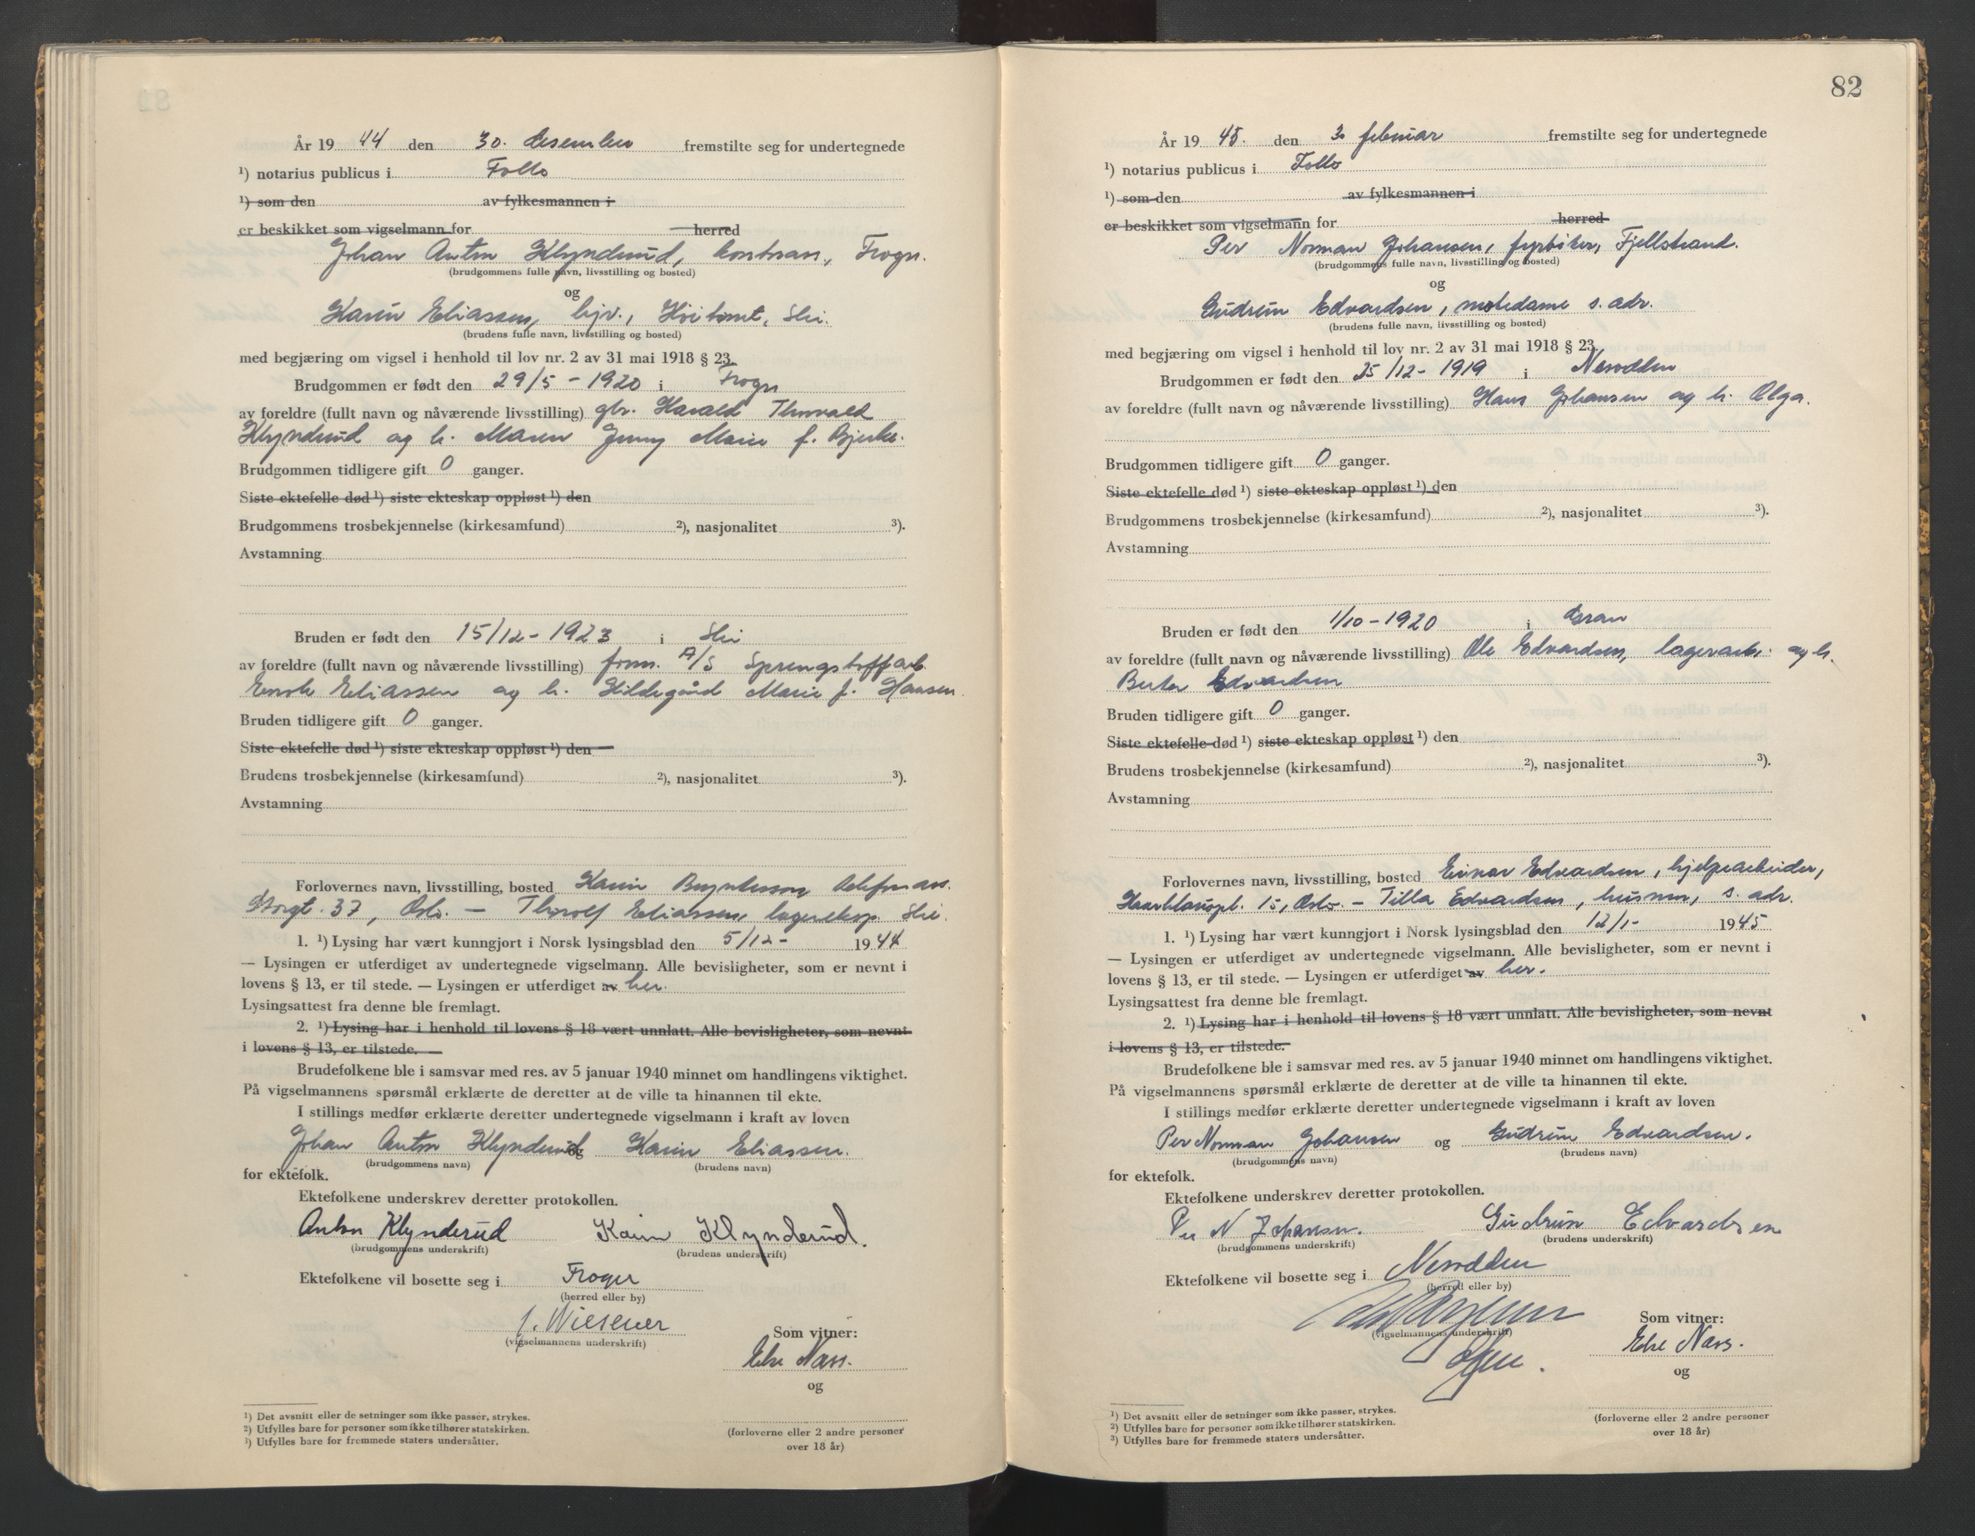 År 19 44 den 30. desember fremstilte seg for undertegnede
¹) notarius publicus i Follo
¹) som den av fylkesmannen i
er beskikket som vigselmann for herred
Johan Anton Klynderud, kontorass, Frogn.
(brudgommens fulle navn, livsstilling og bosted)
og
Karin Eliassen, hjv., Hvitemt, Ski.
(brudens fulle navn, livsstilling og bosted)
med begjæring om vigsel i henhold til lov nr. 2 av 31 mai 1918 § 23.
Brudgommen er født den 29/5 - 1920 i Frogn
av foreldre (fullt navn og nåværende livsstilling) gbr. Harald Thorvald
Klynderud og h. Maren Jenny Marie f. Bjerke.
Brudgommen tidligere gift 0 ganger.
Siste ektefelle død ¹) siste ekteskap oppløst ¹) den
Brudgommens trosbekjennelse (kirkesamfund) ²), nasjonalitet ³).
Avstamning
Bruden er født den 15/12 - 1923 i Ski
av foreldre (fullt navn og nåværende livsstilling) form. A/S Sprengstoffarb.
Eliassen og h. Hildegård Marie f. Hansen.
Bruden tidligere gift 0 ganger.
Siste ektefelle død ¹) siste ekteskap oppløst ¹) den
Brudens trosbekjennelse (kirkesamfund) ²), nasjonalitet ³).
Avstamning
Forlovernes navn, livsstilling, bosted Karin
Storgt. 37, Oslo. — Thorolf Eliassen, lagereksp. Ski.
1. ¹) Lysing har vært kunngjort i Norsk lysingsblad den 5/12 - 1944
— Lysingen er utferdiget av undertegnede vigselmann. Alle bevisligheter, som er nevnt i
lovens § 13, er til stede. — Lysingen er utferdiget av her.
Lysingsattest fra denne ble fremlagt.
2. ¹) Lysing har i henhold til lovens § 18 vært unnlatt. Alle bevisligheter, som nevnt
i lovens § 13, er tilstede. —
Brudefolkene ble i samsvar med res. av 5 januar 1940 minnet om handlingens viktighet.
På vigselmannens spørsmål erklærte de deretter at de ville ta hinannen til ekte.
I stillings medfør erklærte deretter undertegnede vigselmann i kraft av loven
Johan Anton Klynderud og Karin Eliassen.
(brudgommens navn) (brudens navn)
for ektefolk.
Ektefolkene underskrev deretter protokollen.
Anton Klynderud Karin Klynderud.
(brudgommens underskrift) (brudens underskrift)
Ektefolkene vil bosette seg i Frogn
(herred eller by)
J. Wiesener
(vigselmannens underskrift)
Som vitner:
Else Næss.
og
(forloverne eller 2 andre personer
over 18 år)
¹) Det avsnitt eller de setninger som ikke passer, strykes.
²) Utfylles bare for personer som ikke tilhører statskirken.
³) Utfylles bare for fremmede staters undersåtter.
82
År 19 45. den 3. februar fremstilte seg for undertegnede
¹) notarius publicus i Follo
¹) som den av fylkesmannen i
er beskikket som vigselmann for herred
Per Norman Johansen, fyrbøter, Fjellstrand.
(brudgommens fulle navn, livsstilling og bosted)
og
Gudrun Edvardsen, motedame s. adr.
(brudens fulle navn, livsstilling og bosted)
med begjæring om vigsel i henhold til lov nr. 2 av 31 mai 1918 § 23.
Brudgommen er født den 25/12 - 1919 i Nesodden
av foreldre (fullt navn og nåværende livsstilling) Hans Johansen og h. Olga.
Brudgommen tidligere gift 0 ganger.
Siste ektefelle død ¹) siste ekteskap oppløst ¹) den
Brudgommens trosbekjennelse (kirkesamfund) ²), nasjonalitet ³).
Avstamning
Bruden er født den 1/10 - 1920 i Gran
av foreldre (fullt navn og nåværende livsstilling) Ole Edvardsen, lagerarb. og h.
Berta Edvardsen
Bruden tidligere gift 0 ganger.
Siste ektefelle død ¹) siste ekteskap oppløst ¹) den
Brudens trosbekjennelse (kirkesamfund) ²), nasjonalitet ³).
Avstamning
Forlovernes navn, livsstilling, bosted Einar Edvardsen, hjelpearbeider,
15, Oslo. — Tilla Edvardsen, husmor, s. adr.
1. ¹) Lysing har vært kunngjort i Norsk lysingsblad den 12/1 - 1945
— Lysingen er utferdiget av undertegnede vigselmann. Alle bevisligheter, som er nevnt i
lovens § 13, er til stede. — Lysingen er utferdiget av her.
Lysingsattest fra denne ble fremlagt.
2. ¹) Lysing har i henhold til lovens § 18 vært unnlatt. Alle bevisligheter, som nevnt
i lovens § 13, er tilstede.
Brudefolkene ble i samsvar med res. av 5 januar 1940 minnet om handlingens viktighet.
På vigselmannens spørsmål erklærte de deretter at de ville ta hinannen til ekte.
I stillings medfør erklærte deretter undertegnede vigselmann i kraft av loven
Per Norman Johansen og Gudrun Edvardsen.
(brudgommens navn) (brudens navn)
for ektefolk.
Ektefolkene underskrev deretter protokollen.
Per N Johansen. Gudrun Edvardsen
(brudgommens underskrift) (brudens underskrift)
Ektefolkene vil bosette seg i Nesodden
(herred eller by)
(vigselmannens underskrift)
Som vitner:
Else Næss.
og
(forloverne eller 2 andre personer
over 18 år)
¹) Det avsnitt eller de setninger som ikke passer, strykes.
²) Utfylles bare for personer som ikke tilhører statskirken.
³) Utfylles bare for fremmede staters undersåtter.